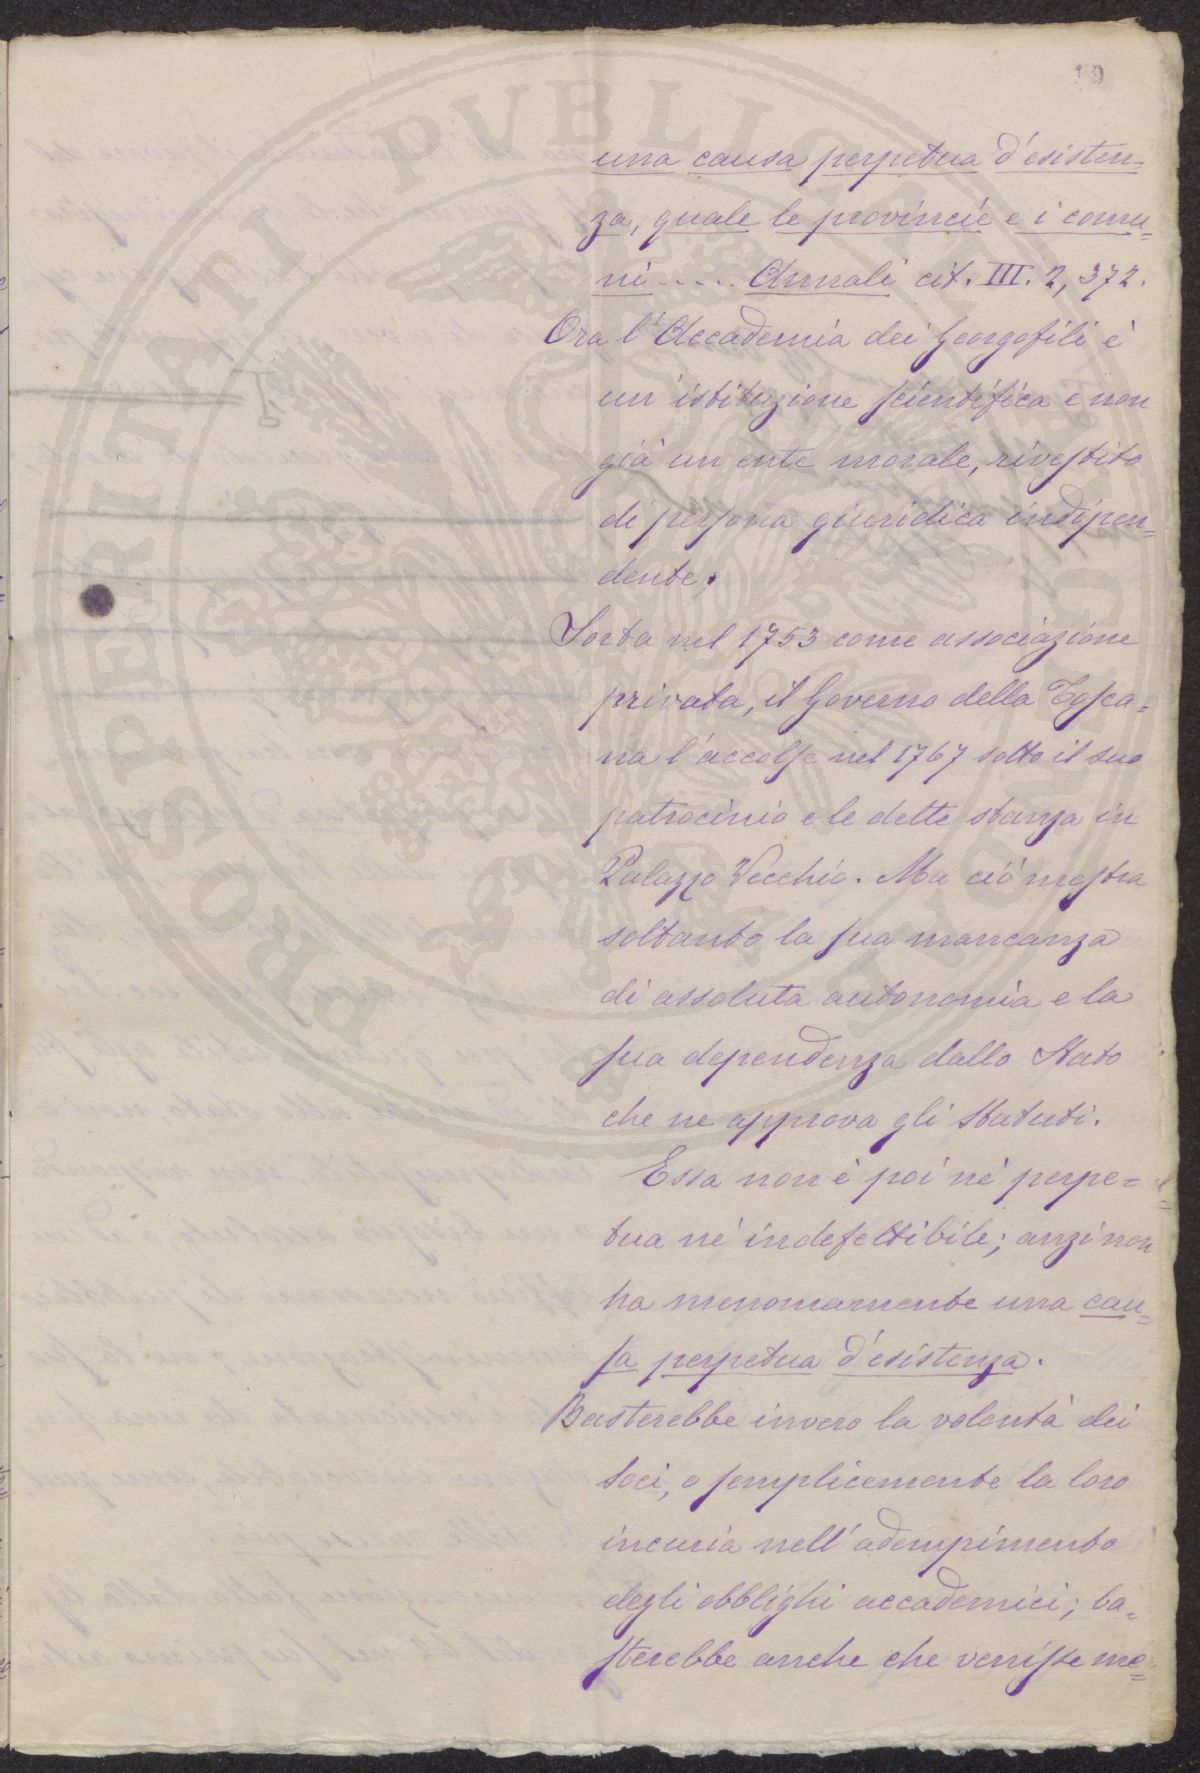 19
una causa perpetua d'esisten=
za, quale le provincie e i comu=
ni ..... Annali cit. III. 2, 372.
Ora l'Accademia dei Georgofili è
un'istituzione scientifica e non
già un ente morale, rivestito
di persona giuridica indipen=
dente.
Sorta nel 1753 come associazione
privata, il Governo della Tosca=
na l'accolse nel 1767 sotto il suo
patrocinio e le dette stanza in
Palazzo Vecchio. Ma ciò mostra
soltanto la sua mancanza
di assoluta autonomia e la
sua dependenza dallo Stato
che ne approva gli Statuti.
Essa non è poi nè perpe=
tua nè indefettibile; anzi non
ha menomamente una cau=
sa perpetua d'esistenza.
Basterebbe invero la volontà dei
Soci, o semplicemente la loro
incuria nell'adempimento
degli obblighi accademici; ba=
sterebbe anche che venisse me=
PROSPERITATI PVBLICAE